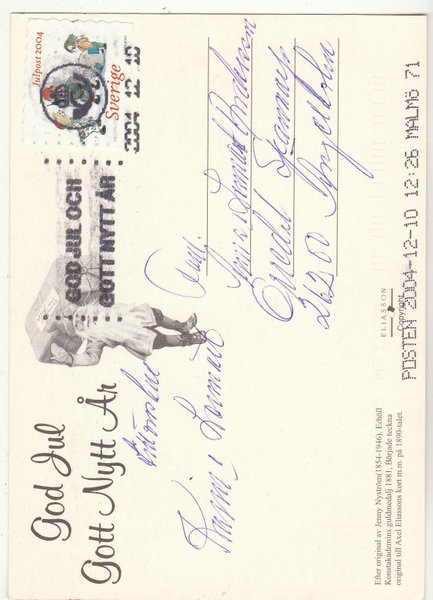 God Jul
Gott Nytt År
önskar
Karin & Lennart
Julpost 2004
Sverige
2004 12 10
GOD JUL OCH
GOTT NYTT ÅR
Fam.
Lennart
262 Ängelholm
ELIASSON
Copyright
POSTEN 2004-12-10 12:26 MALMÖ 71
Efter original av Jenny Nyström(1854-1946). Erhöll
Konstakademins guldmedalj 1881. Började teckna
original till Axel Eliassons kort m.m. på 1890-talet.